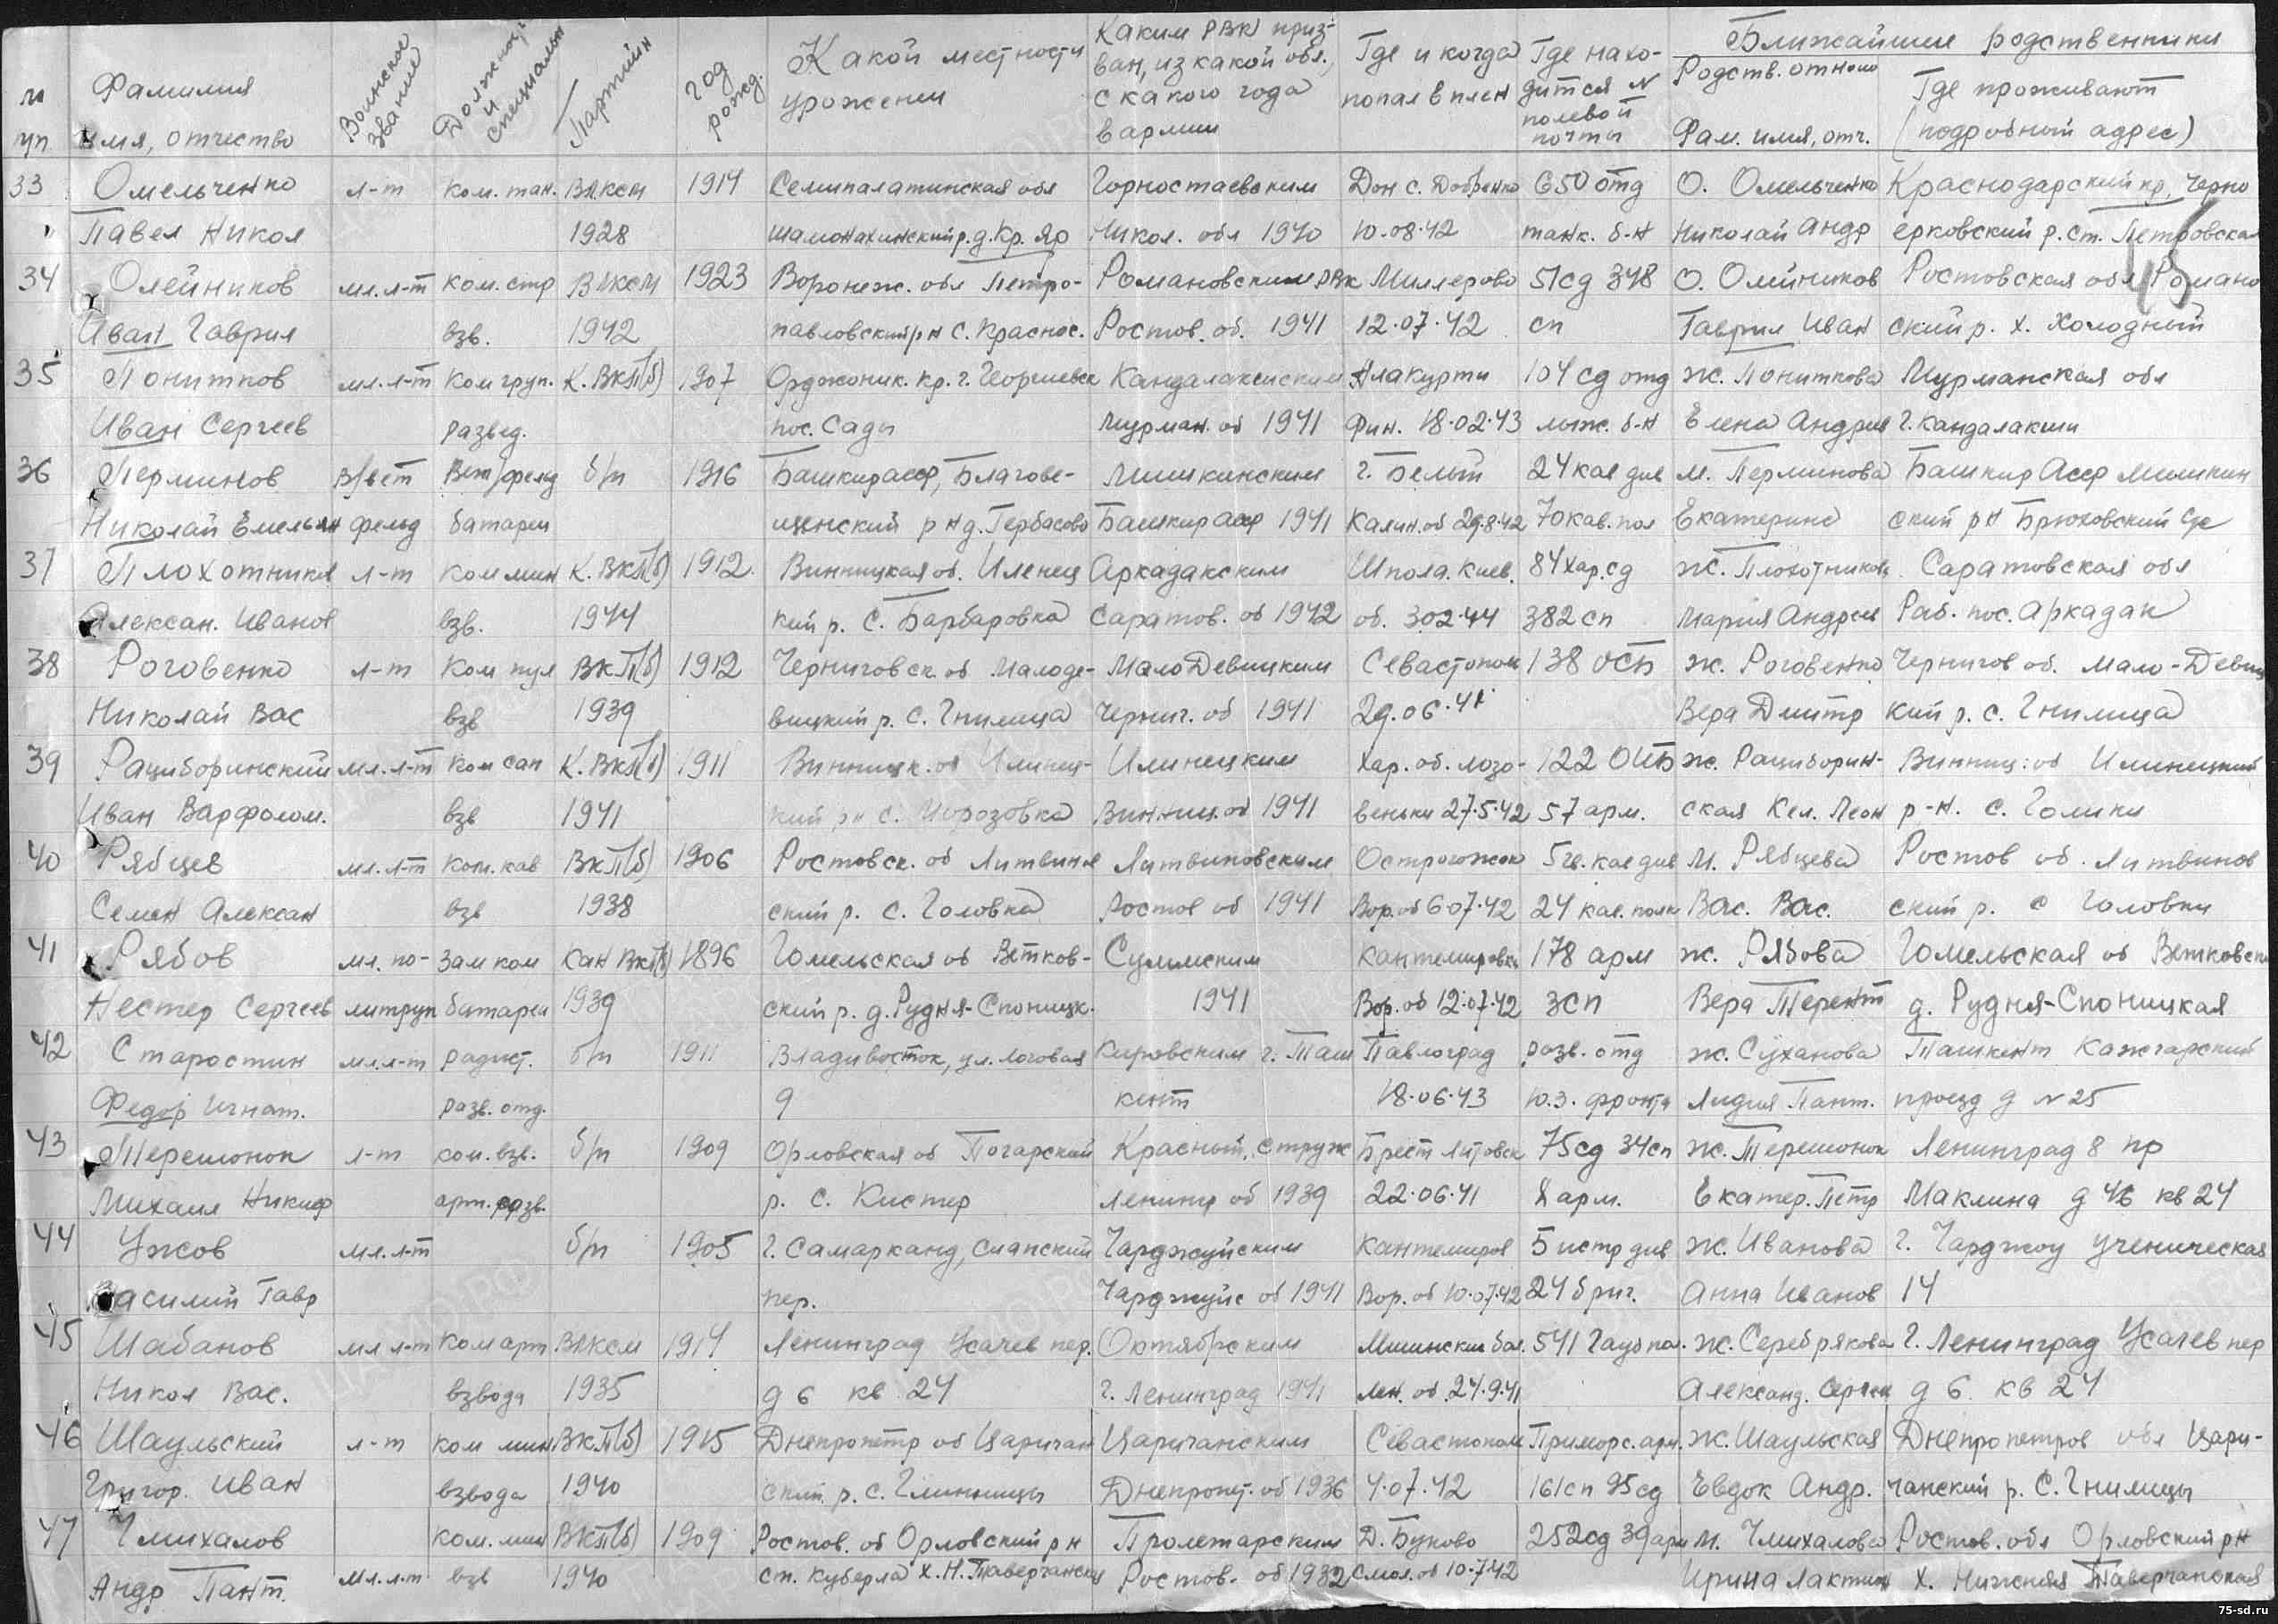 № Фамилия Воинское Должность Партийн Год Какой местности Каким РВК приз- Где и когда Где нахо- Ближайшие родственники
пп имя, отчество звание и специальн рожд. урожении ван, из какой обл., попал в плен дится № Родств. отнош Где проживают
с какого года полевой Фам. имя, отч. (подробный адрес)
в армии почты
33 Омельченко л-т ком. тан. ВЛКСМ 1914 Семипалатинская обл Горностаевским Дон с. 650 отд О. Омельченко Краснодарский кр, Черно
Павел Никол 1928 р.д. Кр. Яр Никол. обл 1940 10.08.42 танк. б-н Николай Андр ерковский р. ст. Петровска
34 Олейников мл. л-т ком. стр ВЛКСМ 1923 Воронеж. обл Петро- Романовским РВК Миллерово 51сд 348 О. Олейников Ростовская обл Романо
Иван Гаврил взв. 1942 павловский р н С. Краснос. Ростов. об. 1941 12.07.42 сп Гаврил Иван ский р. х. Холодный
35 Понитков мл. л-т Ком груп. К. ВКП(б) 1907 Орджоник. кр. г. Георгиевск Кандалакшским Алакурти 104 сд отд Ж. Пониткова Мурманская обл
Иван Сергеев развед. пос. Сады Мурман. об 1941 Фин. 18.02.43 лыж. б-н Елена Андрев г. Кандалакши
36 Перминов В/вет Вет/фельд б/п 1916 Башкир асср, Благове- Мишкинским г. Белый 24 кав див М. Перминова Башкир Асср Мишкин
Николай Емельян фельд батареи щенский р н д. Гербасово Башкир Аср 1941 Калин. об 29.8.42 70 кав. пол Екатерина ский р н Брюховский с/с
37 Плохотников л-т ком мин К. ВКП(б) 1912. Винницкая об. Иленец Аркадакским Шпола. Киев. 84 Хар. сд Ж. Плохотникова Саратовская обл
Алексан. Иванов взв. 1944 кий р. С. Барбаровка Саратов. об 1942 об. 3.02.44 382 сп Мария Андреев Раб. пос. Аркадак
38 Роговенко л-т Ком пул ВКП(б) 1912 Черниговск. об Малоде- МалоДевицким Севастопол 138 ОСБ Ж. Роговенко Чернигов об. Мало-Девиц
Николай Вас взв 1939 вицкий р. С. Гнилица Черниг. об 1941 29.06.41 Вера Дмитр кий р. с. Гнилица
39 Рациборинский мл. л-т ком сап К. ВКП(б) 1911 Винницк. об Илинец- Илинецким Хар. об. Лозо- 122 ОИБ Ж. Рациборин- Винниц: об Илинецкий
Иван Варфолом. взв 1941 кий р н с. Морозовка Винниц. об 1941 веньки 27.5.42 57 арм. ская Кел. Леон р-н. с. Голики
40 Рябцев мл. л-т ком. кав ВКП(б) 1906 Ростовск. об Литвинов Литвиновским Острогожск 5 гв. кав див М. Рябцева Ростов об. Литвинов
Семен Алексан взв 1938 ский р. с. Головка Ростов об 1941 Вор. об 6.07.42 24 кав. полк Вас. Вас. ский р. с Головки
41 Рябов мл. по- Зам ком Кан ВКП(б) 1896 Гомельская об Ветков- Сумским Кантемировка 178 арм Ж. Рябова Гомельская об Ветковски
Нестер Сергеев литрук батареи 1939 ский р. д. Рудня-Споницк. 1941 Вор. об 12.07.42 зсп Вера Терент д. Рудня-Споницкая
42 Старостин мл. л-т радист. б/п 1911 Владивосток, ул. Логовая Кировским г. Таш Павлоград разв. отд Ж. Суханова Ташкент Кажгарский
Федор Игнат. разв. отд. 9 кент 18.06.43 Ю.З. фронта Лидия Пант. проезд д №25
43 Терешонок л-т ком. взв. б/п 1909 Орловская об Погарский Красный, струж Брест Литовск 75сд 34сп Ж. Терешонок Ленинград 8 пр
Михаил Никиф арт. разв. р. С. Кистер Ленингр об 1939 22.06.41 4 арм. Екатер. Петр Маклина д 46 кв 24
44 Ужов мл. л-т б/п 1905 г. Самарканд, Чарджуйским Кантемиров 5 истр див Ж. Иванова г. Чарджоу Ученическая
Василий Гавр пер. Чарджуйс об 1941 Вор. об 10.07.42 24 бриг. Анна Иванов 14
45 Шабанов мл л-т Ком арт ВЛКСМ 1914 Ленинград Усачев пер. Октябрским Мшинские бол. 541 Гауб пол. Ж. Серебрякова г. Ленинград Усачев пер
Никол Вас. взвода 1935 д 6 кв 24 г. Ленинград 1941 Лен. об. 24.9.41 Александ. Сергеев д 6 кв 24
46 Шаульский л-т ком мин ВКП(б) 1915 Днепропетр об Царичан Царичанским Севастополь Приморс. арм. Ж. Шаульская Днепропетров обл Цари-
Григор. Иван взвода 1940 ский р. с. Глинницы Днепропет. об 1936 4.07.42 161сп 95сд Евдок Андр. чанский р. С. Гнилицы
47 Чмихалов ком. мин ВКП(б) 1909 Ростов. об Орловский р н Пролетарским Д. Буково 252сд 39арм М. Чмихалова Ростов. обл Орловский р н
Андр Пант. мл. л-т взв 1940 ст. Куберла х. Н. Таверчански Ростов. об 1932 Смол. об 10.7.42 Ирина Лактион х. Нижняя Таверчанская
45
75-sd.ru